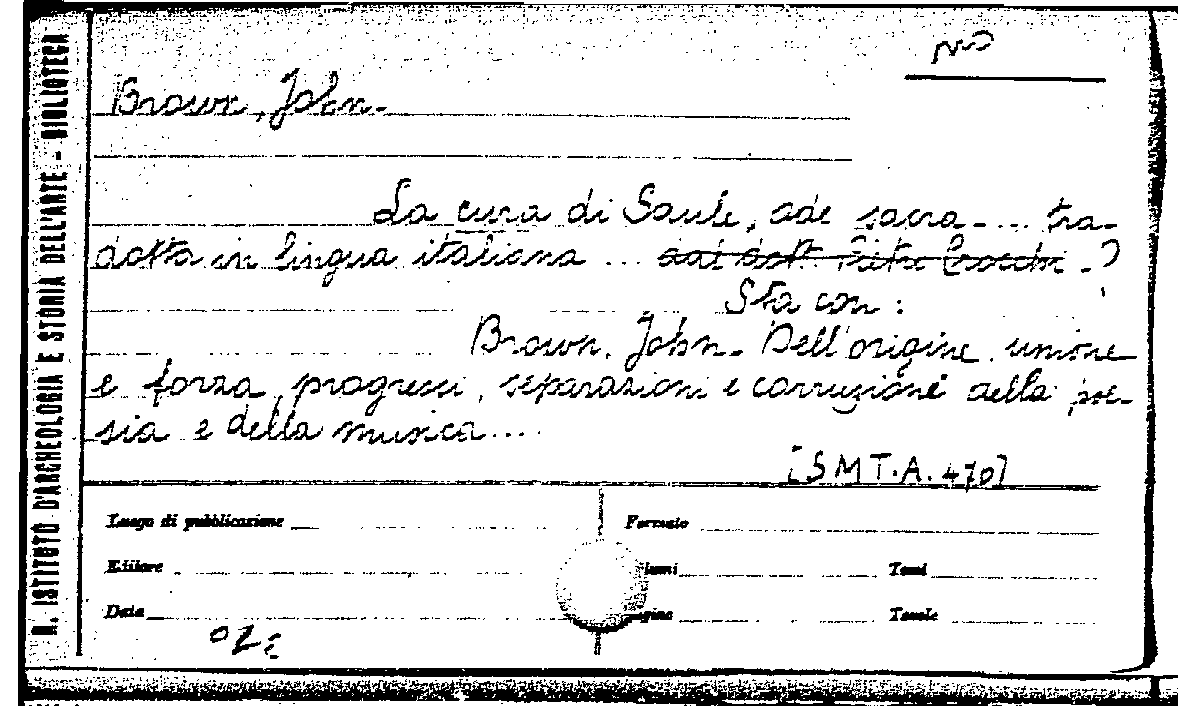 R. ISTITUTO D'ARCHEOLOGIA E STORIA DELL'ARTE - BIBLIOTECA
Brown, John-
La cura di Saule, ode sacra.... tra-
dotta in lingua italiana ... dal dott. Pietro Crocchi - ?
Sta con:
Brown, John- Dell'origine, unione
e forza, progressi, separazioni e corruzione della poe-
sia e della musica....
[SMT.A. 470]
Luogo di pubblicazione Formato
Editore Volumi Tomi
Data Pagine Tavole